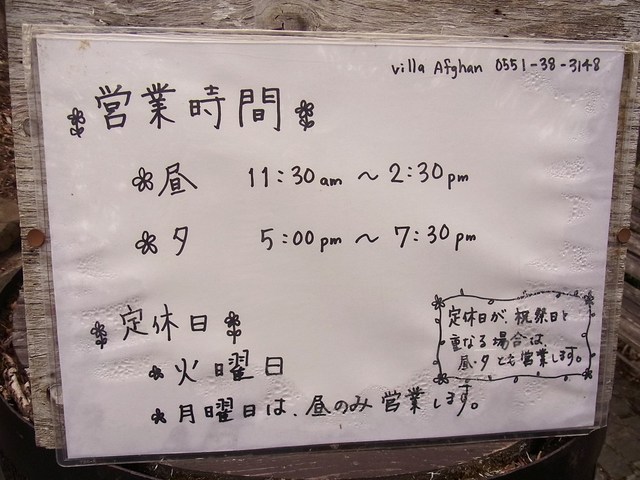 villa Afghan 0551-38-3148
営業時間
昼 11:30am ~ 2:30pm
夕 5:00pm ~ 7:30pm
定休日
火曜日
月曜日は、昼のみ営業します。
定休日が、祝祭日と
重なる場合は、
昼・夕とも営業します。